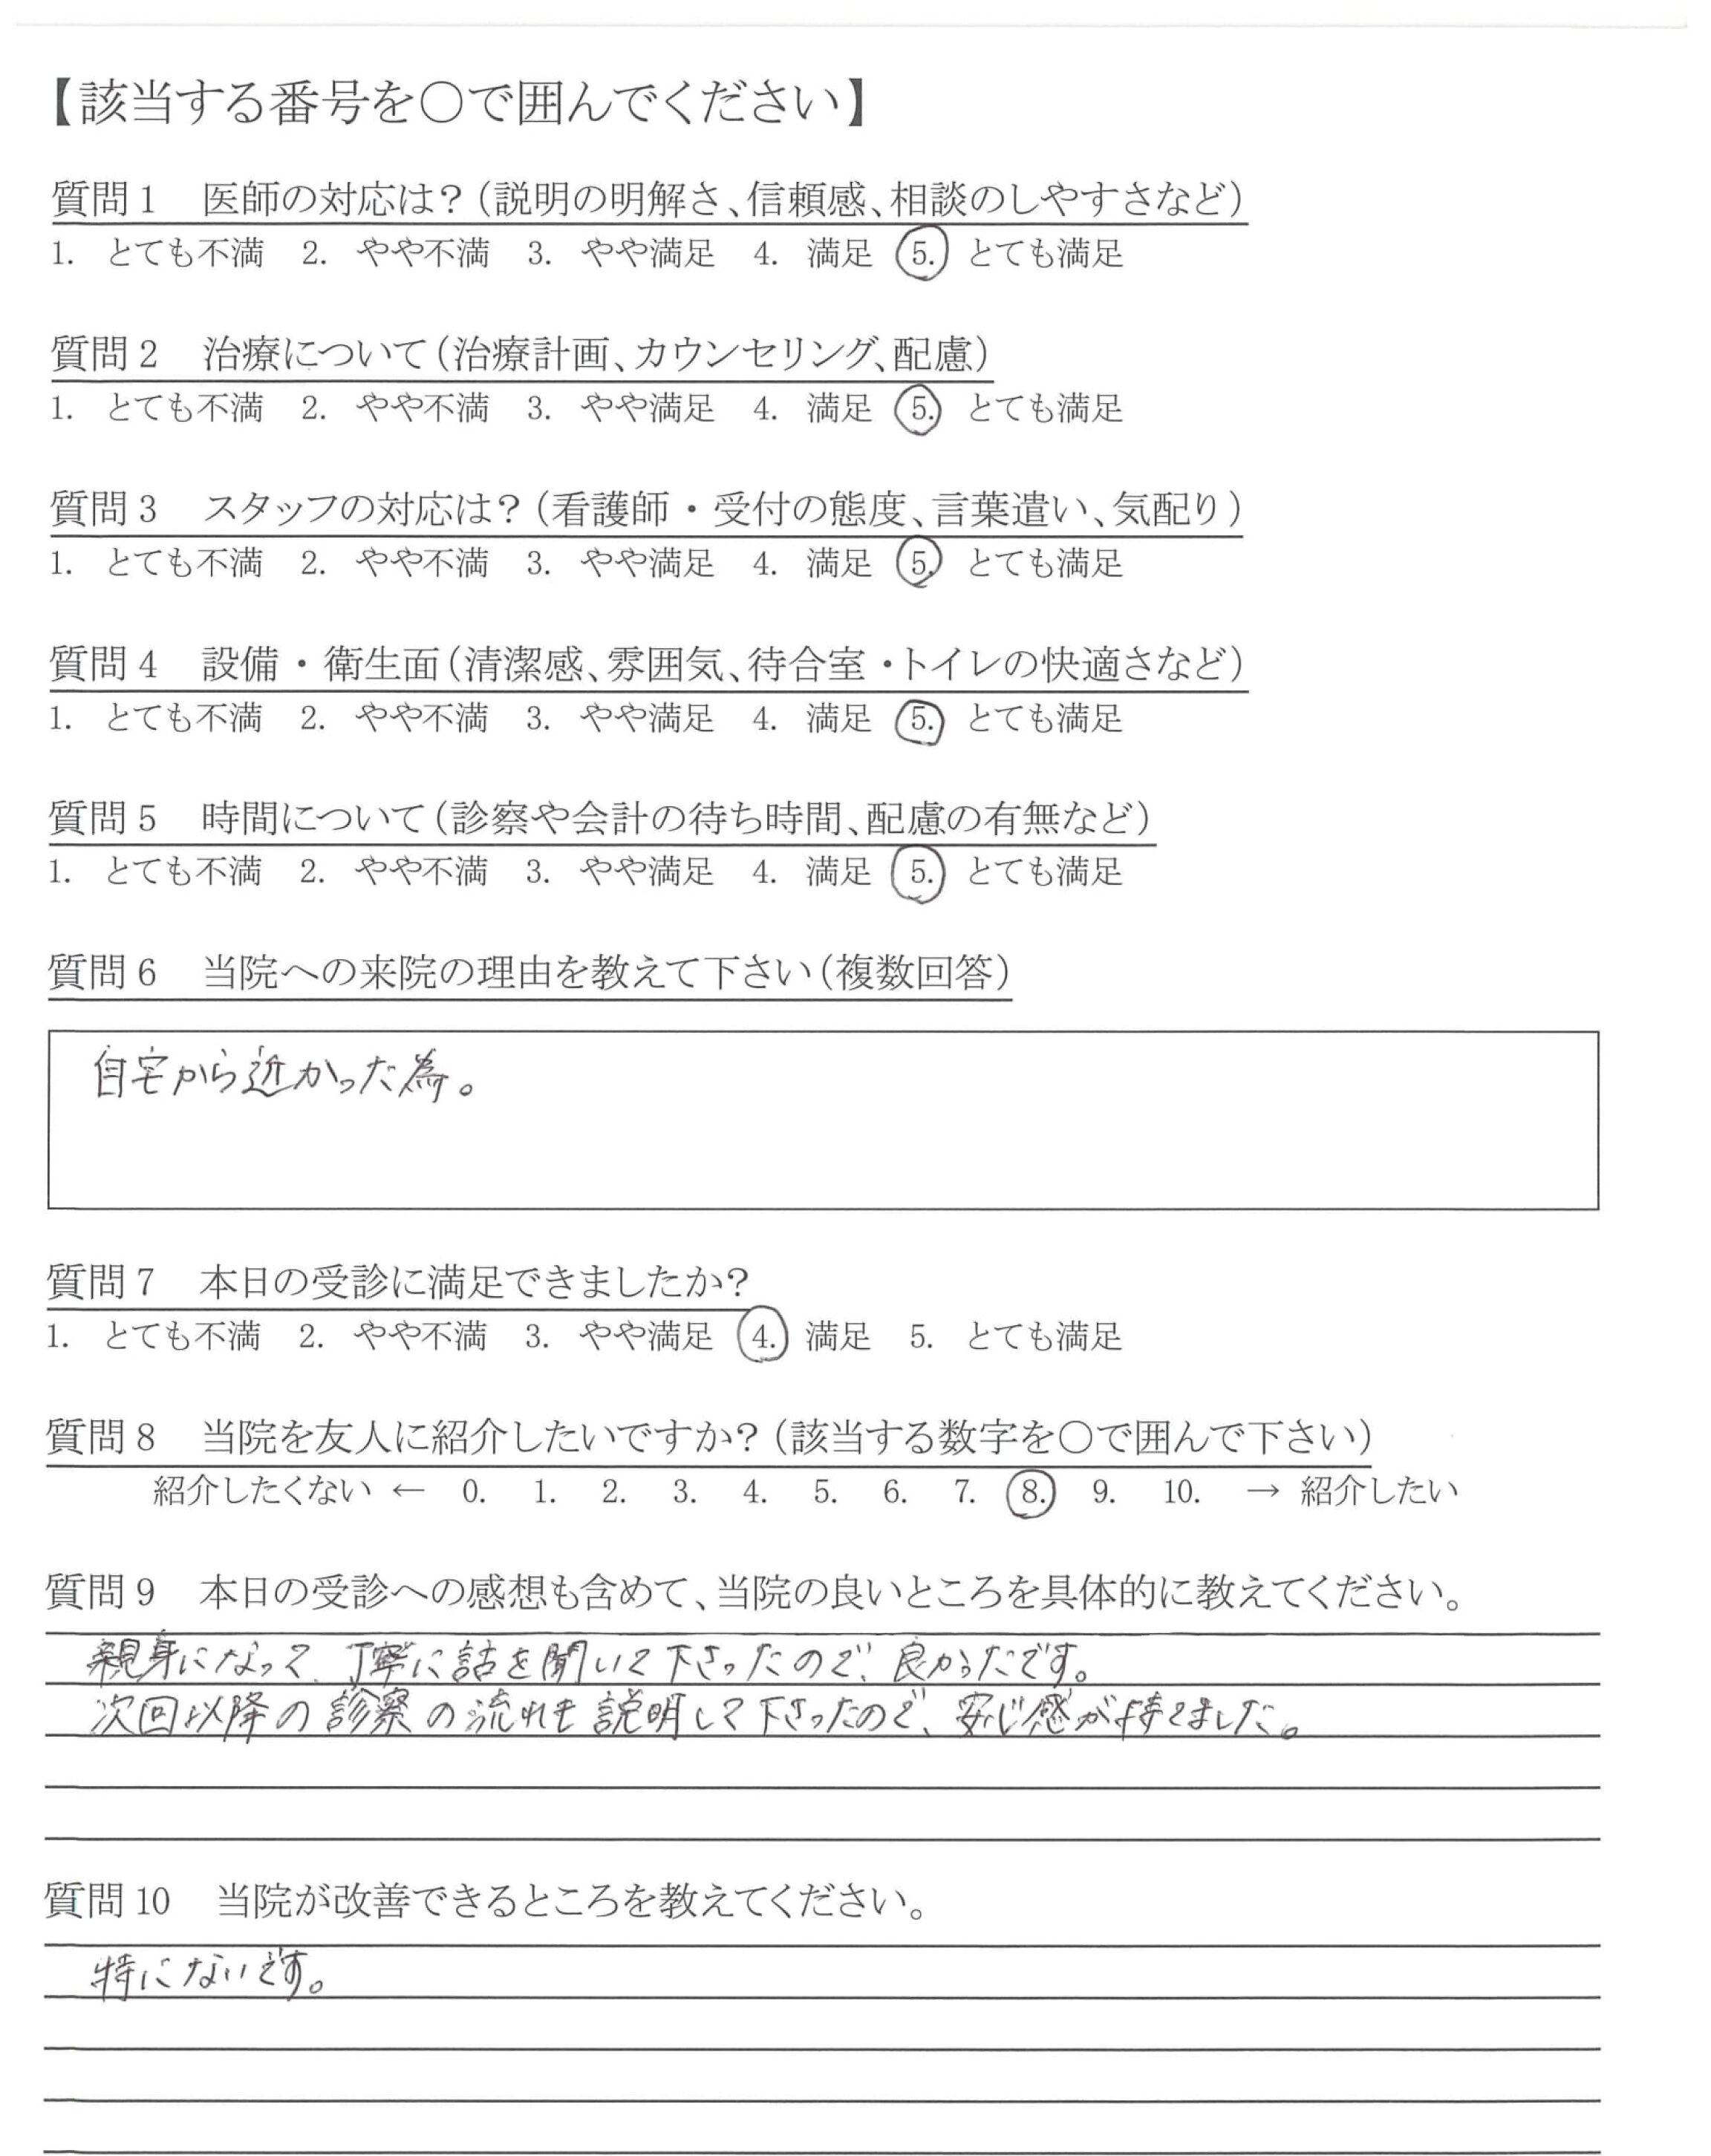 【該当する番号を○で囲んでください】
質問1 医師の対応は?(説明の明解さ、信頼感、相談のしやすさなど)
1. とても不満 2. やや不満 3. やや満足 4. 満足 5. とても満足
質問2 治療について(治療計画、カウンセリング、配慮)
1. とても不満 2. やや不満 3. やや満足 4. 満足 5. とても満足
質問3 スタッフの対応は?(看護師・受付の態度、言葉遣い、気配り)
1. とても不満 2. やや不満 3. やや満足 4. 満足 5. とても満足
質問4 設備・衛生面(清潔感、雰囲気、待合室・トイレの快適さなど)
1. とても不満 2. やや不満 3. やや満足 4. 満足 5. とても満足
質問5 時間について(診察や会計の待ち時間、配慮の有無など)
1. とても不満 2. やや不満 3. やや満足 4. 満足 5. とても満足
質問6 当院への来院の理由を教えて下さい(複数回答)
自宅から近かった為。
質問7 本日の受診に満足できましたか?
1. とても不満 2. やや不満 3. やや満足 4. 満足 5. とても満足
質問8 当院を友人に紹介したいですか?(該当する数字を○で囲んで下さい)
紹介したくない ← 0. 1. 2. 3. 4. 5. 6. 7. 8. 9. 10. → 紹介したい
質問9 本日の受診への感想も含めて、当院の良いところを具体的に教えてください。
親身になって、丁寧に話を聞いて下さったので、良かったです。
次回以降の診察の流れも説明して下さったので、安心感が持てました。
質問10 当院が改善できるところを教えてください。
特にないです。